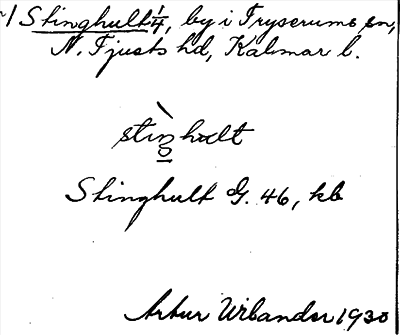 ~/ Stinghult 1/4, by i Tryserums sn,
N. Tjusts hd, Kalmar l.
stiŋhult
Stinghult G. 46, kb
Artur Wibander 1930